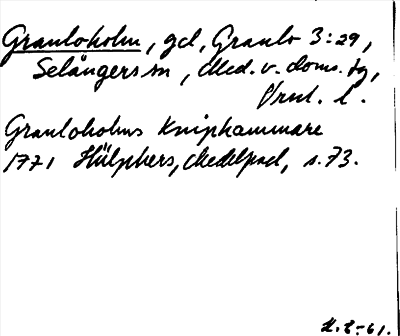 Granloholm, gd, Granlo 3:29,
Selångers sn, Med. v. doms. tg,
Vrnl. l.
Granloholms Kniphammare
1771 Hülphers, Medelpad, s. 73.
H. E-61.